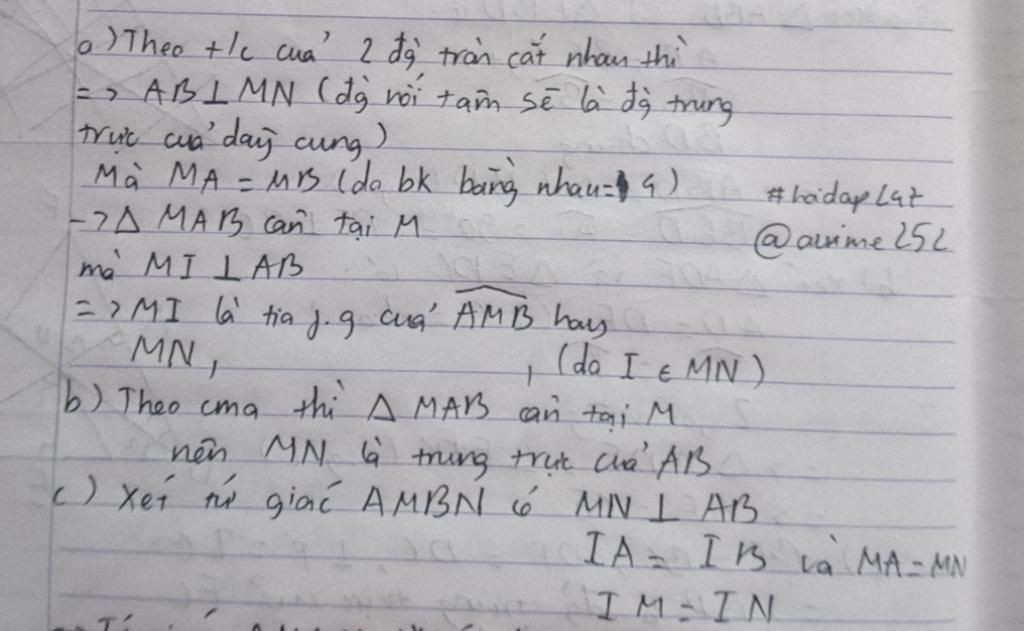 a) Theo t/c cuả 2 đg̀ tròn cắt nhau thì
=> AB ⊥ MN (đg̀ nối tâm sẽ là đg̀ trung
trực cuả dây cung)
Mà MA = MB (do bk bằng nhau = 4)
#hoidap247
-> Δ MAB cân tại M
@anime252
mà MI ⊥ AB
=> MI là tia p.g cuả AMB hay
MN, , (do I ∈ MN)
b) Theo cma thì Δ MAB cân tại M
nên MN là trung trực cuả AB
c) Xét tứ giác AMBN có MN ⊥ AB
IA = IB và MA = MN
IM = IN